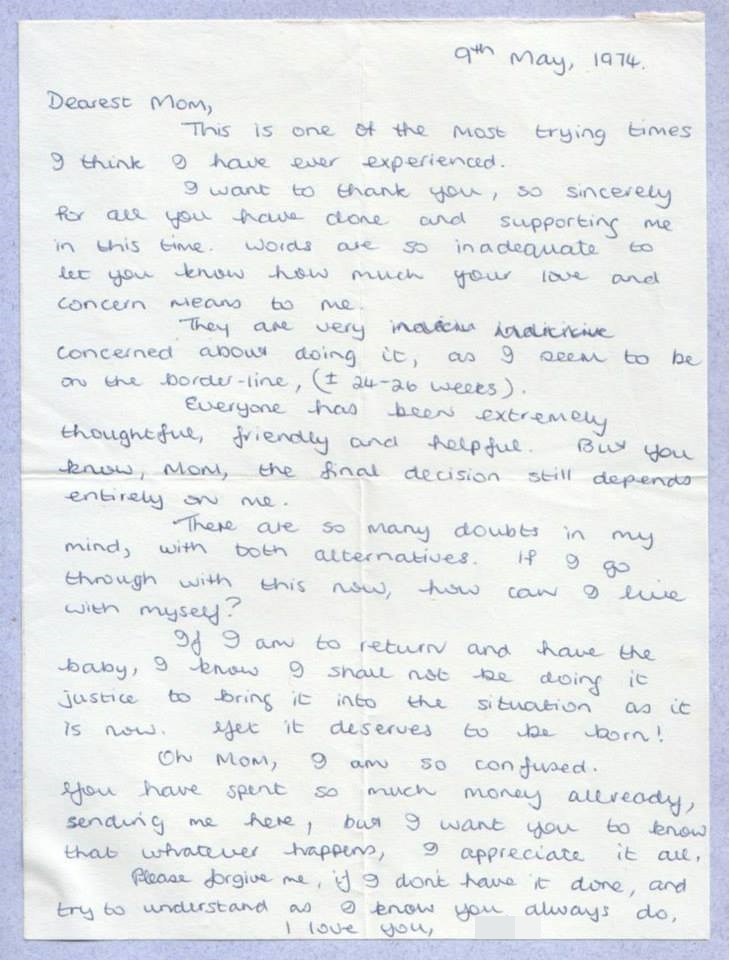 9th May, 1974.
Dearest Mom,
This is one of the most trying times
I think I have ever experienced.
I want to thank you, so sincerely
for all you have done and supporting me
in this time. Words are so inadequate to
let you know how much your love and
concern means to me.
They are very
concerned about doing it, as I seem to be
on the border-line, (± 24-26 weeks).
Everyone has been extremely
thoughtful, friendly and helpful. But you
know, Mom, the final decision still depends
entirely on me.
There are so many doubts in my
mind, with both alternatives. If I go
through with this now, how can I live
with myself?
If I am to return and have the
baby, I know I shall not be doing it
justice to bring it into the situation as it
is now. Yet it deserves to be born!
Oh Mom, I am so confused.
You have spent so much money allready,
sending me here, but I want you to know
that whatever happens, I appreciate it all.
Please forgive me, if I dont have it done, and
try to understand as I know you always do.
I love you,